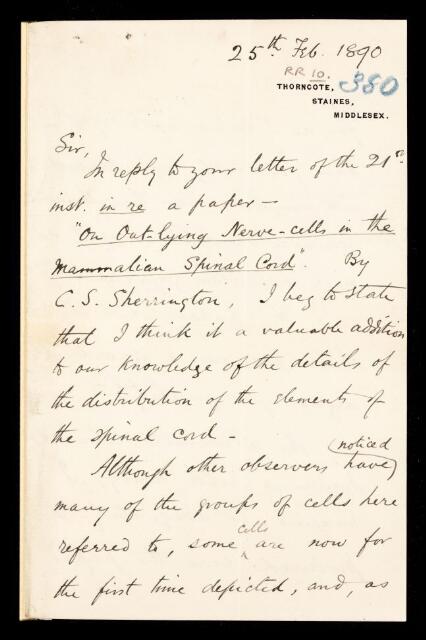 25th Feb. 1890
RR 10.
380
THORNCOTE,
STAINES,
MIDDLESEX.
Sir,
In reply to your letter of the 21st
inst. in re a paper —
"On Out-lying Nerve-cells in the
Mammalian Spinal Cord". By
C. S. Sherrington, I beg to state
that I think it a valuable addition
to our knowledge of the details of
the distribution of the elements of
the spinal cord —
noticed
Although other observers have
many of the groups of cells here
cells
referred to, some are now for
the first time depicted, and, as